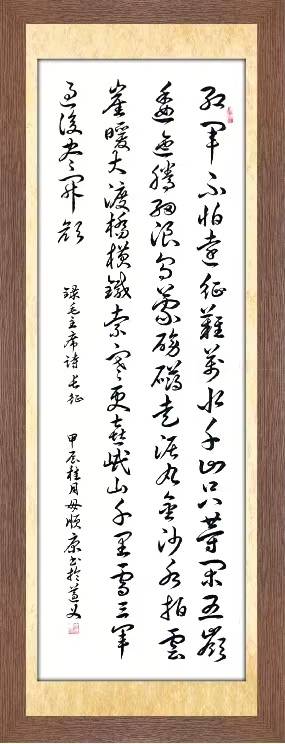 紅軍不怕遠征難萬水千山只等閑五嶺
逶迤騰細浪烏蒙磅礴走泥丸金沙水拍雲
崖暖大渡橋橫鐵索寒更喜岷山千里雪三軍
過後盡開顏
錄毛主席詩長征
甲辰桂月母順康书於遵义